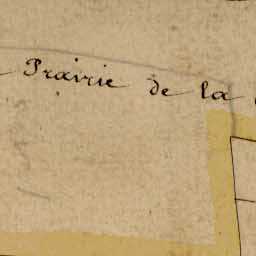 Prairie de la